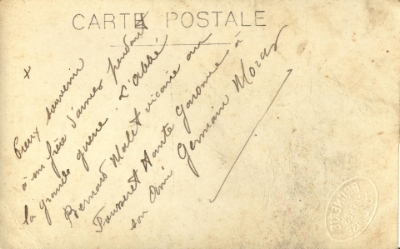 CARTE POSTALE
+
Pieux souvenir
à un frère d'armes pendant
la grande guerre L'Abbé
Bernard Malet vicaire au
Fousseret Haute Garonne à
son ami Germain Moras